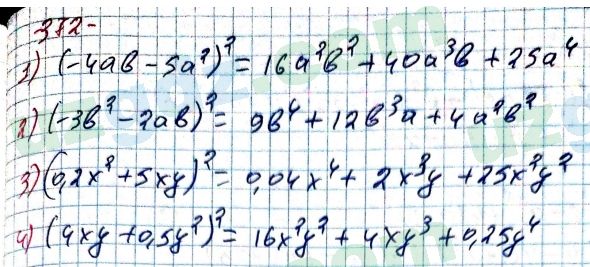 372-
1) (-4ab - 5a²)² = 16a²b² + 40a³b + 25a⁴
2) (-3b² - 2ab)² = 9b⁴ + 12b³a + 4a²b²
3) (0,2x² + 5xy)² = 0,04x⁴ + 2x³y + 25x²y²
4) (4xy + 0,5y²)² = 16x²y² + 4xy³ + 0,25y⁴